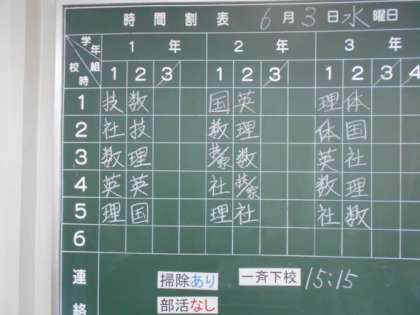 時間割表 6月3日水曜日
学年 1年 2年 3年
校時 組 1 2 3 1 2 3 1 2 3 4
1 技 数 国 英 理 体
2 社 技 数 理 体 国
3 数 理 数 英 社
4 英 英 社 数 理
5 理 国 理 社 社 数
6
連絡 掃除あり 一斉下校 15:15
部活なし